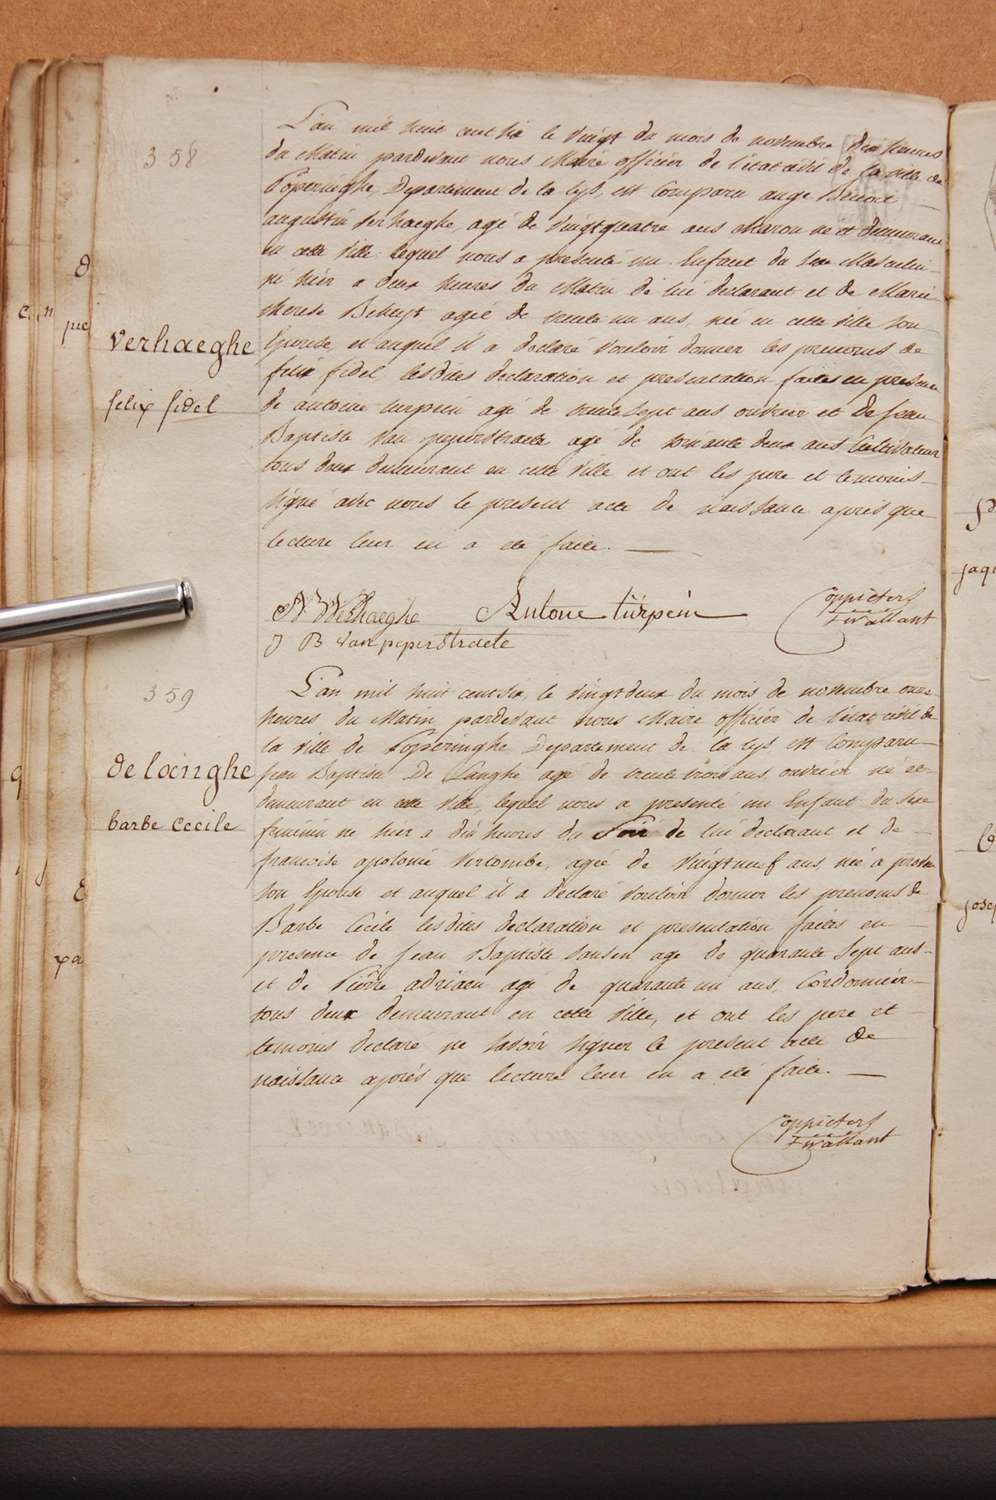 358
L'an mil huit cent six le vingt du mois de novembre dix heures
du Matin pardevant nous Maire officier de l'état civil de la ville de
Poperinghe, Departement de la Lys, est comparu ange Benoit
augustin verhaeghe, agé de vingtquatre ans Maron né et demeurant
en cette ville lequel nous a presenté un Enfant du Sexe Masculin
né hier a deux heures du Matin de lui declarant et de Marie
therese agée de trente un ans, née en cette ville son
Epouse, et auquel il a declaré vouloir donner les prenoms de
felix fidel lesdites declaration et presentation faites en presence
de antoine turpein agé de trente sept ans ouvrier et de jean
Baptiste Van peperstraete agé de soixante deux ans Cultivateur
tous deux demeurant en cette ville et ont les pere et temoins
signé avec nous le present acte de naissance après que
lecture leur en a été faite. —
verhaeghe
felix fidel
A Verhaeghe Antone türpein Coppieters
J B van peperstraete t'wallant
359
L'an mil huit cent six le vingtdeux du mois de novembre onze
heures du Matin, pardevant nous Maire officier de l'état civil de
la ville de Poperinghe Departement de la Lys est comparu
jean Baptiste De Langhe agé de trente trois ans, ouvrier né et
demeurant en cette ville, lequel nous a presenté un Enfant du sexe
feminin né hier a dix heures du Soir de lui declarant et de
francoise apolonie agée de vingtneuf ans, née a
son Epouse et auquel il a declaré vouloir donner les prenoms de
Barbe Cecile lesdites declaration et presentation faites en
presence de jean Baptiste Sansen agé de quarante sept ans
et de Pierre adriaen agé de quarante un ans, Cordonnier
tous deux demeurant en cette ville, et ont les pere et
temoins declaré ne savoir signer le present acte de
naissance après que lecture leur en a été faite. —
delanghe
barbe cecile
Coppieters
t'wallant